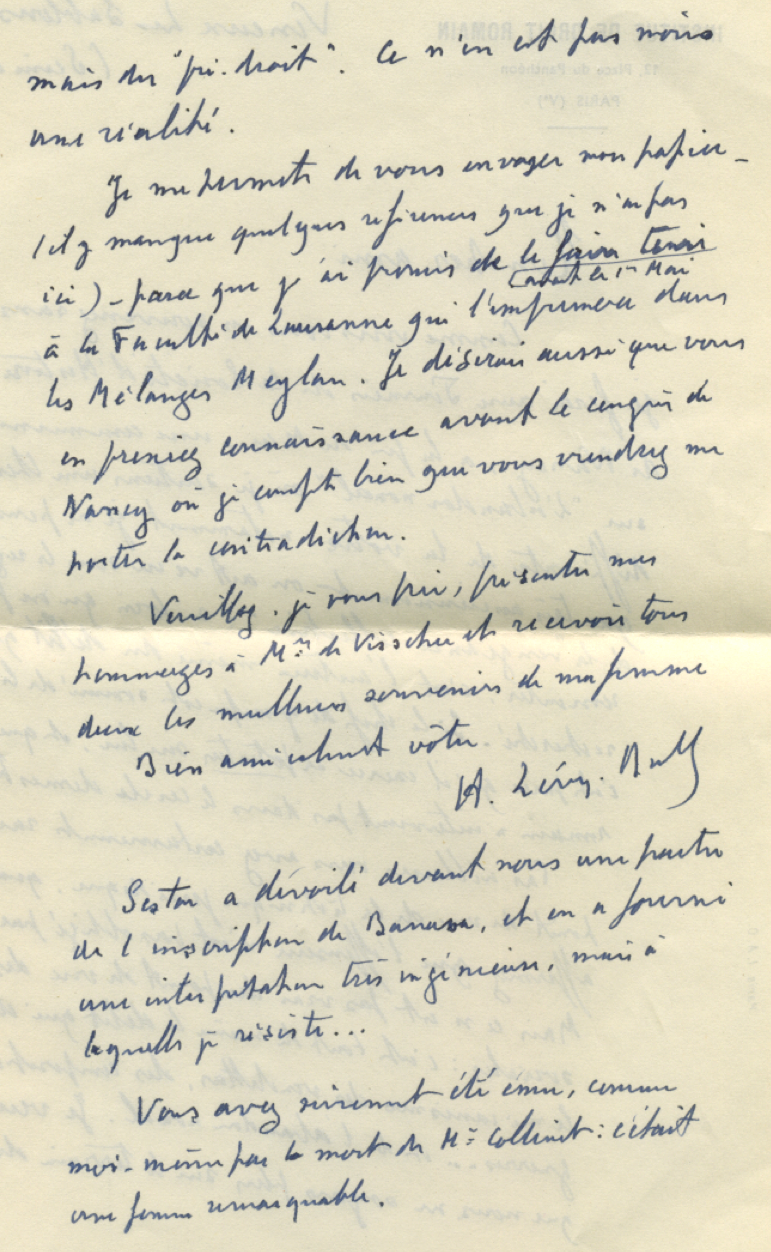 mais du "pré-droit". Ce n'en est pas moins
une réalité.
Je me permets de vous envoyer mon papier -
(il y manque quelques références que je n'ai pas
ici) - parce que j'ai promis de le faire tenir
(avant le 1er Mai
à la Faculté de Lausanne qui l'imprimera dans
les Mélanges Meylan. Je désirais aussi que vous
en preniez connaissance avant le congrès de
Nancy où je compte bien que vous viendrez me
porter la contradiction.
Veuillez, je vous prie, présenter mes
hommages à Mme de Visscher et recevoir tous
deux les meilleurs souvenirs de ma femme
Bien amicalement vôtre
H. Lévy-Bruhl
Seston a dévoilé devant nous une partie
de l'inscription de Banasa, et en a fourni
une interprétation très ingénieuse, mais à
laquelle je résiste...
Vous avez sûrement été ému, comme
moi-même par la mort de Me Collinet : c'était
une femme remarquable.